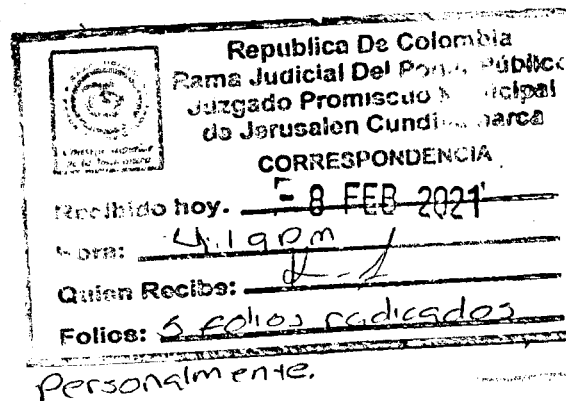 Republica De Colombia
Rama Judicial Del Público
Juzgado Promiscuo
de Jerusalen
CORRESPONDENCIA
Recibido hoy. - 8 FEB 2021
Hora: 4:19 pm
Quien Recibe:
Folios: 5 folios radicados
Personalmente.